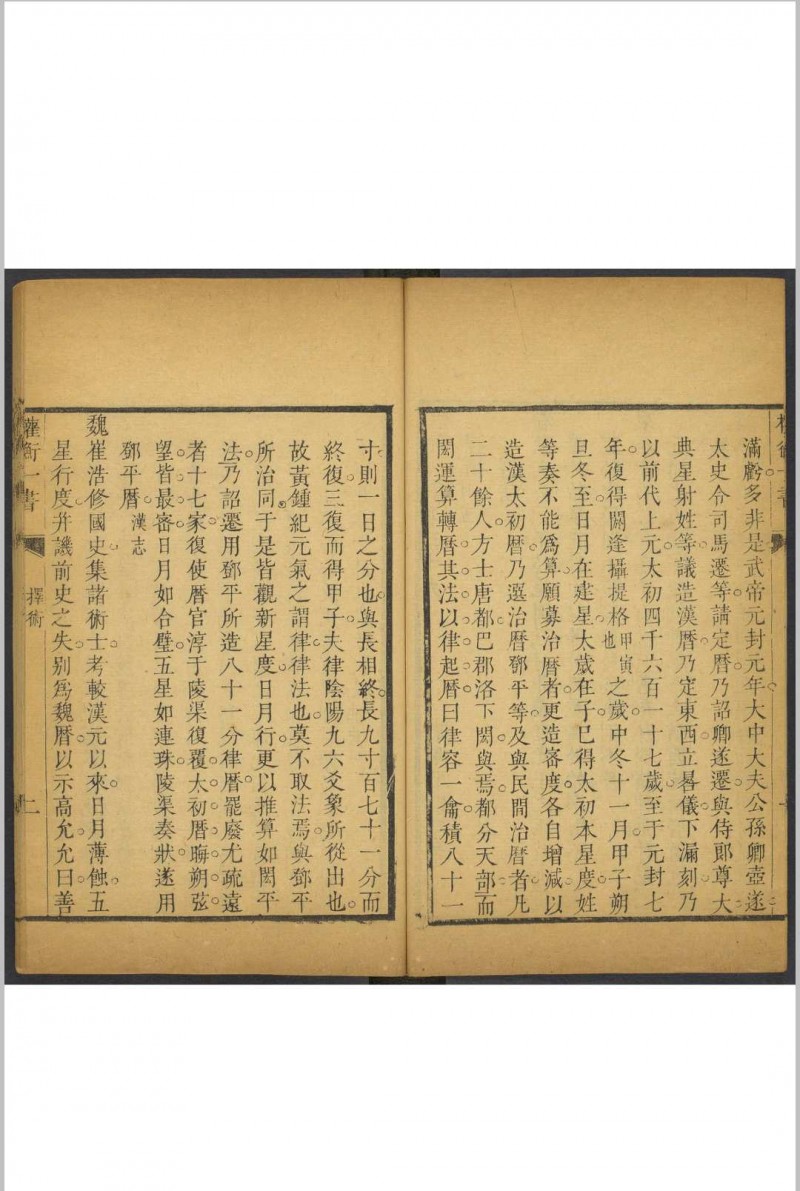 滿虧多非是武帝元封元年大中大夫公孫卿壺遂
太史令司馬遷等請定曆乃詔卿遂遷與侍郎尊大
典星射姓等議造漢曆乃定東西立晷儀下漏刻乃
以前代上元太初四千六百一十七歲至于元封七
年復得閼逢攝提格甲寅也之歲中冬十一月甲子朔
旦冬至日月在建星太歲在子巳得太初本星度姓
等奏不能爲算願募治曆者更造審度各自增減以
造漢太初曆乃選治曆鄧平等及與民間治曆者凡
二十餘人方士唐都巴郡洛下閎與焉都分天部而
閎運算轉曆其法以律起曆曰律容一龠積八十一
寸則一日之分也與長相終長九寸百七十一分而
終復三復而得甲子夫律陰陽九六爻象所從出也
故黃鍾紀元氣之謂律律法也莫不取法焉與鄧平
所治同于是皆觀新星度日月行更以推算如閎平
法乃詔遷用鄧平所造八十一分律曆罷廢尤疏遠
者十七家復使曆官淳于陵渠復覆太初曆晦朔弦
望皆最審日月如合璧五星如連珠陵渠奏狀遂用
鄧平曆漢志
魏崔浩修國史集諸術士考較漢元以來日月薄蝕五
星行度并譏前史之失別爲魏曆以示高允允曰善
權衡一書
擇術
二